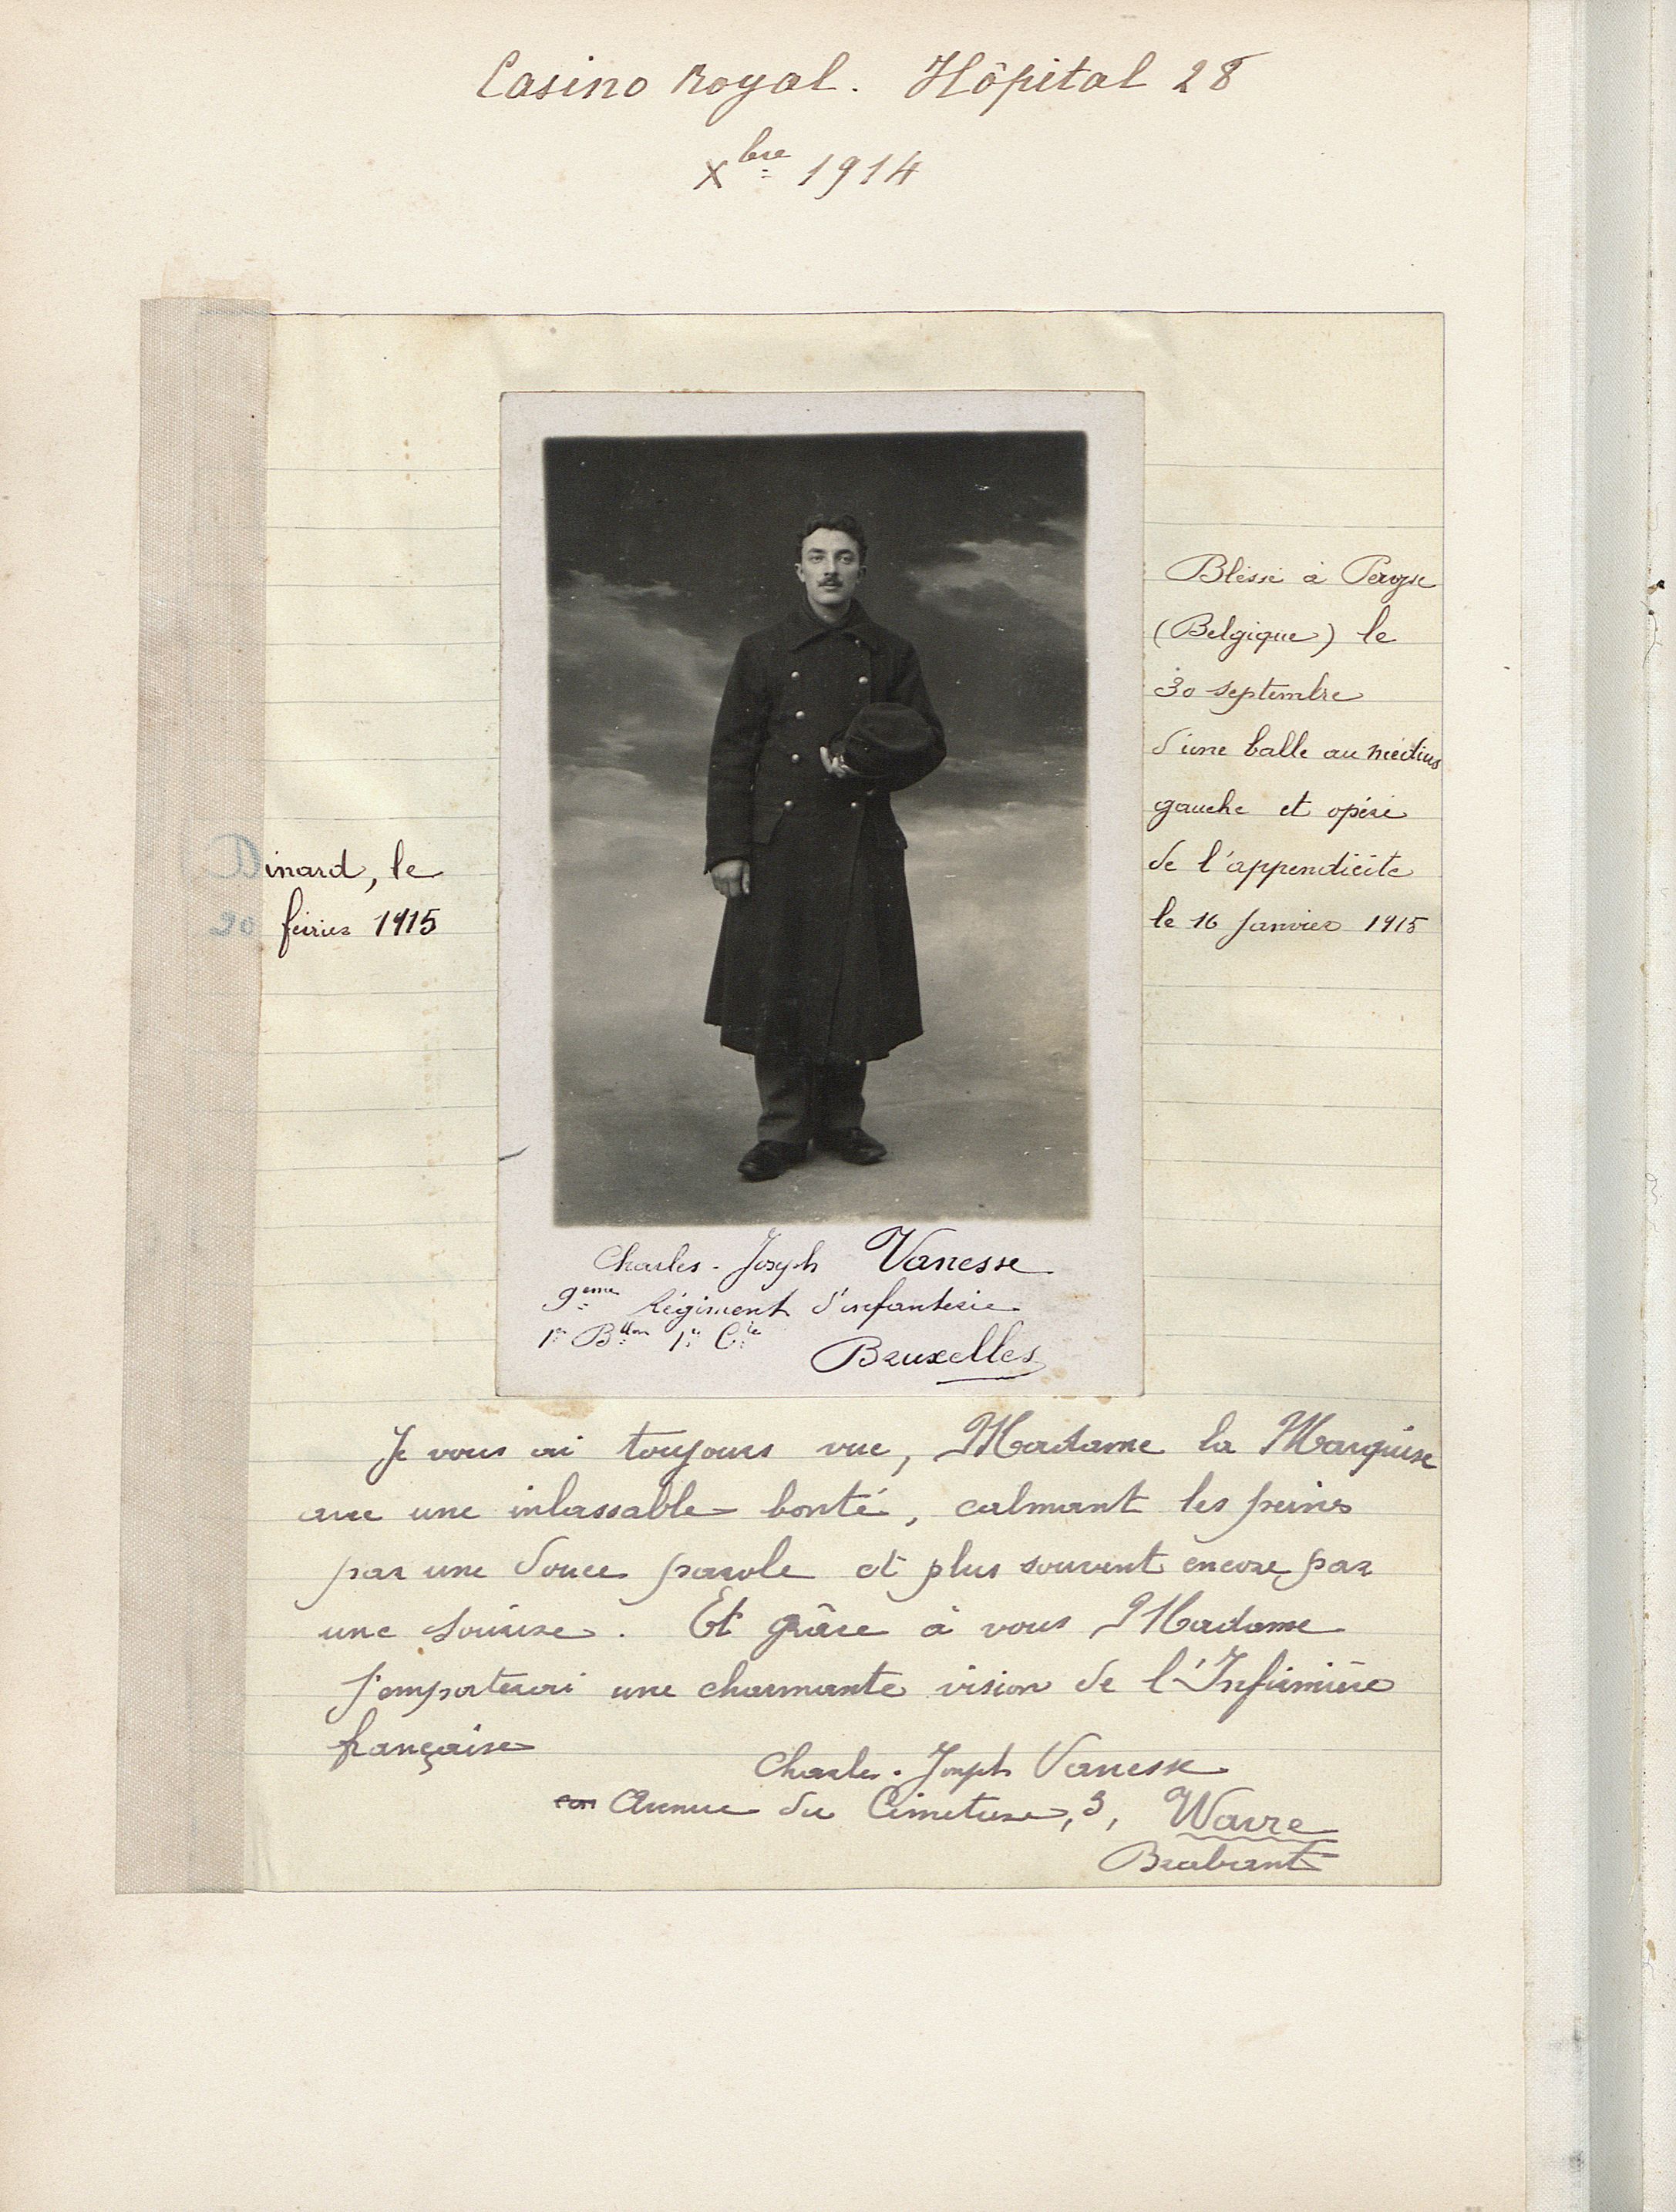 Casino Royal. Hôpital 28
Xbre 1914
Blessé à Pervyse
(Belgique) le
30 septembre
d'une balle au médius
gauche et opéré
de l'appendicite
le 16 Janvier 1915
Dinard, le
20 février 1915
Charles-Joseph Vanesse
9ème Régiment d'infanterie
1er Btton 1re Cie
Bruxelles
Je vous ai toujours vue, Madame la Marquise
avec une inlassable bonté, calmant les peines
par une douce parole et plus souvent encore par
une sourire. Et grâce à vous Madame
j'emporterai une charmante vision de l'Infirmière
française
Charles-Joseph Vanesse
Avenue du Cimetière, 3, Wavre
Brabant